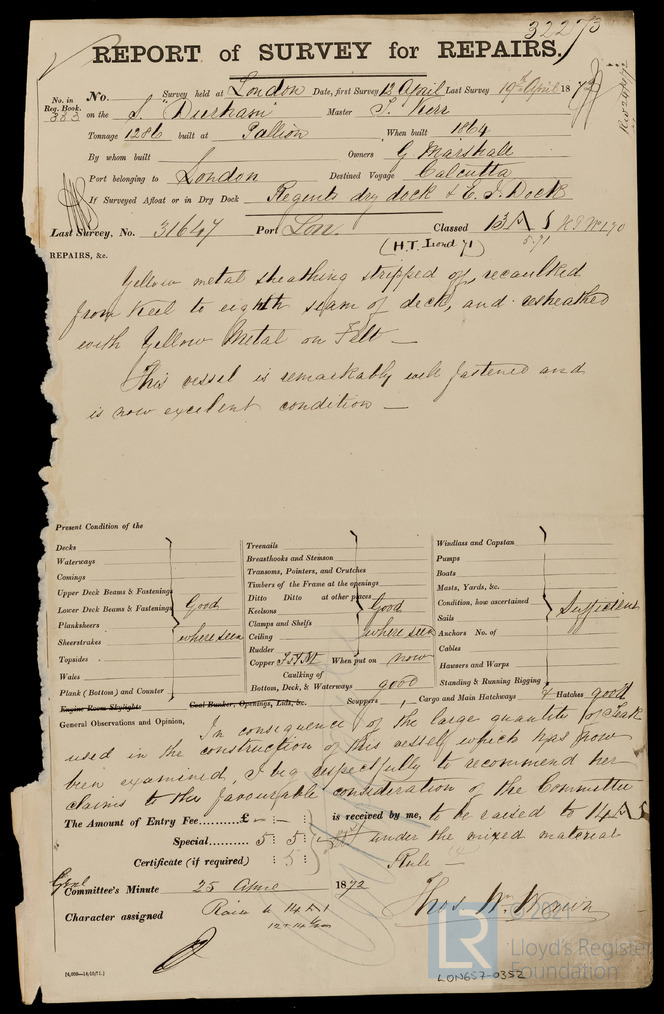 32273
REPORT of SURVEY for REPAIRS.
No. in Reg. Book. 383
No. Survey held at London Date, first Survey 12 April Last Survey 19th April 1872
on the S. "Durham" Master S. Kerr
Tonnage 1286 built at Pallion When built 1864
By whom built Owners G Marshall
Port belonging to London Destined Voyage Calcutta
If Surveyed Afloat or in Dry Dock Regents dry dock & E. I. Dock
Last Survey, No. 31647 Port Lon. Classed 13 A 1
5.71
(H.T. Irond 71)
REPAIRS, &c.
Yellow metal sheathing stripped off, recaulked
from Keel to eighth seam of deck, and resheathed
with Yellow Metal on Felt —
This vessel is remarkably well fastened and
is now excelent condition —
Present Condition of the
Decks
Waterways
Comings
Upper Deck Beams & Fastenings
Lower Deck Beams & Fastenings
Planksheers
Sheerstrakes
Topsides
Wales
Plank (Bottom) and Counter
Good
where seen
Engine Room Skylights
Treenails
Breasthooks and Stemson
Transoms, Pointers, and Crutches
Timbers of the Frame at the openings
Ditto Ditto at other places
Keelsons
Clamps and Shelfs
Ceiling
Rudder
Good
where seen
Copper When put on now
Caulking of
Bottom, Deck, & Waterways good
Coal Bunker, Openings, Lids, &c.
Windlass and Capstan
Pumps
Boats
Masts, Yards, &c.
Condition, how ascertained
Sails
Anchors No. of
Cables
Hawsers and Warps
Standing & Running Rigging
Sufficient
Scuppers Cargo and Main Hatchways & Hatches good
General Observations and Opinion, In consequence of the large quantity of Teak
used in the construction of this vessel, which has now
been examined, I beg respectfully to recommend her
claims to the favourable consideration of the Committee
The Amount of Entry Fee.........£ - : - : is received by me, to be raised to 14 A 1
Special......... 5 : 5 : under the mixed material
Certificate (if required) : 5 : Rule —
Committee's Minute 25 April 1872
Thos. Wm. Wawn
Character assigned Raise to 14 A 1
[4,000—14/10/71.]
LR
© 2021
Lloyd's Register
Foundation
LON657-0352